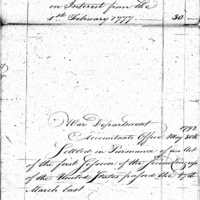 on Interest from the
1st February 1777. 30
War Department
1792
Accountants Office May 30th
Settled in Pursuance of an Act
of the first Session of the second Congress
of the United States passed the 27th
March last